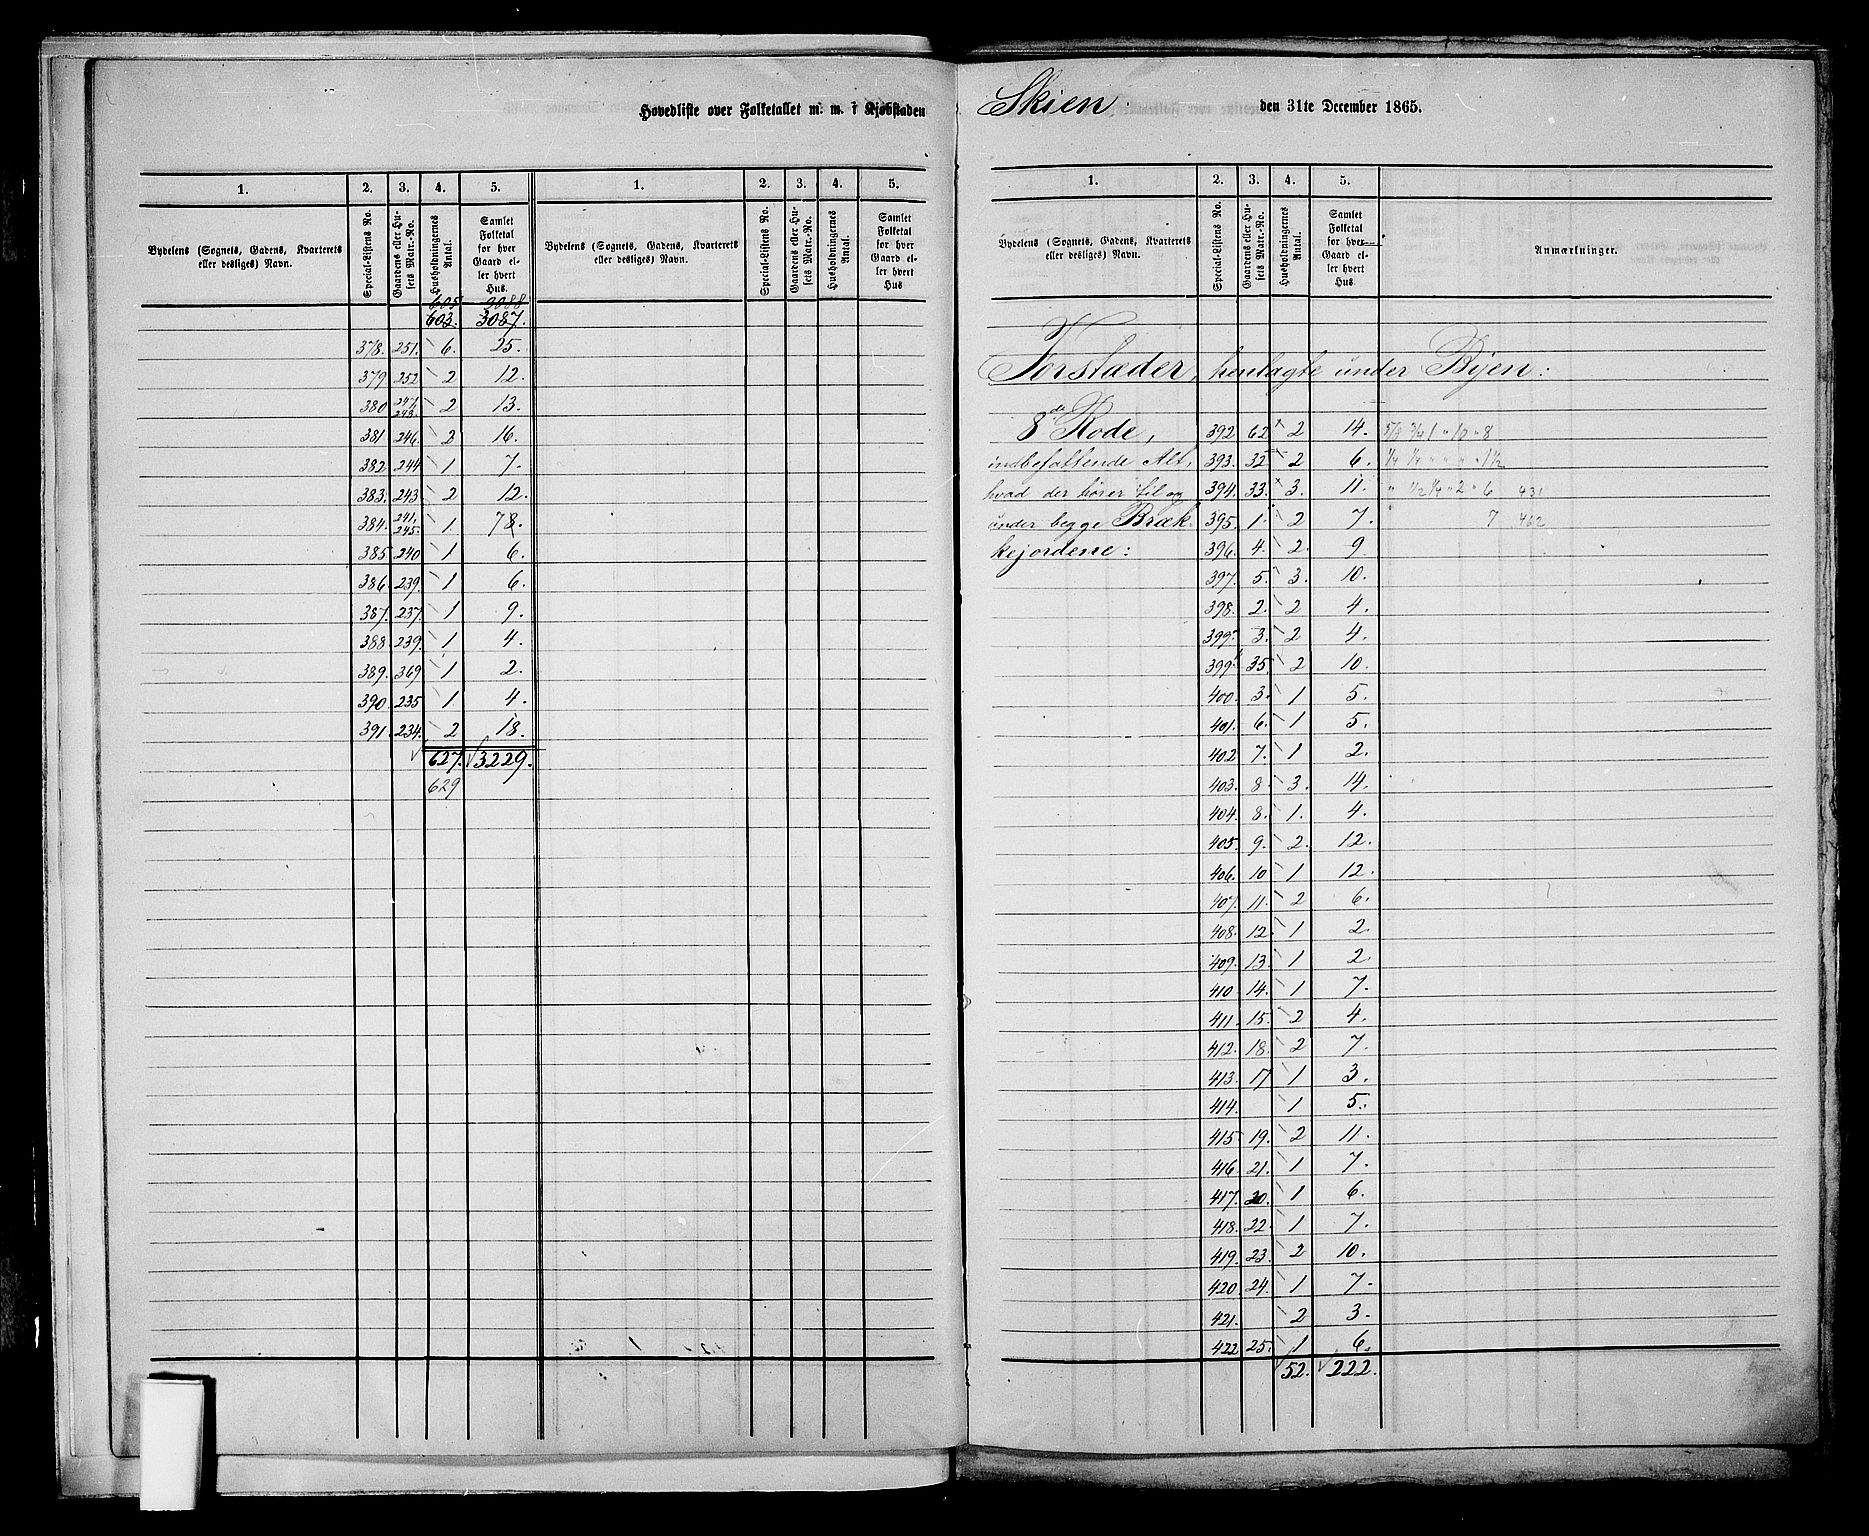 Hovedliste over Folketallet m. m. i Kjøbstaden Skien. den 31te December 1865.
1. 2. 3. 4. 5. 1. 2. 3. 4. 5.
Bydelens (Sognets, Gadens, Kvarterets eller desliges) Navn. Special-Listens No. Gaardens eller Husets Matr.-No. Husholdningernes Antal. Samlet Folketal for hver Gaard eller hvert Hus. Bydelens (Sognets, Gadens, Kvarterets eller desliges) Navn. Special-Listens No. Gaardens eller Husets Matr.-No. Husholdningernes Antal. Samlet Folketal for hver Gaard eller hvert Hus
605 3088
603. 3087.
378. 251. 6. 25.
379 252 2 12.
380 247, 248. 2 13.
381 246. 2 16.
382 244 1 7.
383. 243. 2 12.
384. 241, 245. 1 78.
385 240 1 6.
386. 239. 1 6.
387. 237. 1 9.
388 239. 1 4.
389. 369 1 2.
390. 235 1 4.
391. 234. 2 18.
627. 3229.
629
1. 2. 3. 4. 5.
Bydelens (Sognets, Gadens, Kvarterets eller desliges) Navn. Special-Listens No. Gaardens eller Husets Matr.-No. Husholdningernes Antal. Samlet Folketal for hver Gaard eller hvert Hus. Anmærkninger.
Forstader, henlagte under Byen:
8de Rode, 392 62 2 14. 5/8 3/4 1 " 10 " 8
indbefattende Alt, 393. 32 2 6. 1/4 1/4 " " " " 1 1/2
hvad der hører til og 394. 33. 3. 11. " 1/2 1/4 " 2 " 6 431
under begge Bræk- 395. 1. 2 7. " 7 462
kejordene: 396. 4. 2. 9
397. 5. 3. 10.
398. 2. 2 4.
399a 3. 2 4.
399b 35. 2 10.
400. 3. 1 5.
401. 6. 1 5.
402 7. 1 2.
403. 8 3. 14.
404. 8. 1. 4.
405. 9. 2. 12.
406. 10 1 12.
407. 11. 2 6.
408. 12. 1 2.
409. 13. 1 2.
410 14. 1 7.
411. 15. 2 4.
412. 18. 2 7.
413. 17 1 3.
414. 1 5.
415 19. 2 11.
416 21. 1 7.
417. 20. 1 6.
418. 22. 1 7.
419. 23. 2 10.
420 24. 1 7.
421. 2 3.
422 25. 1 6.
52. 222.